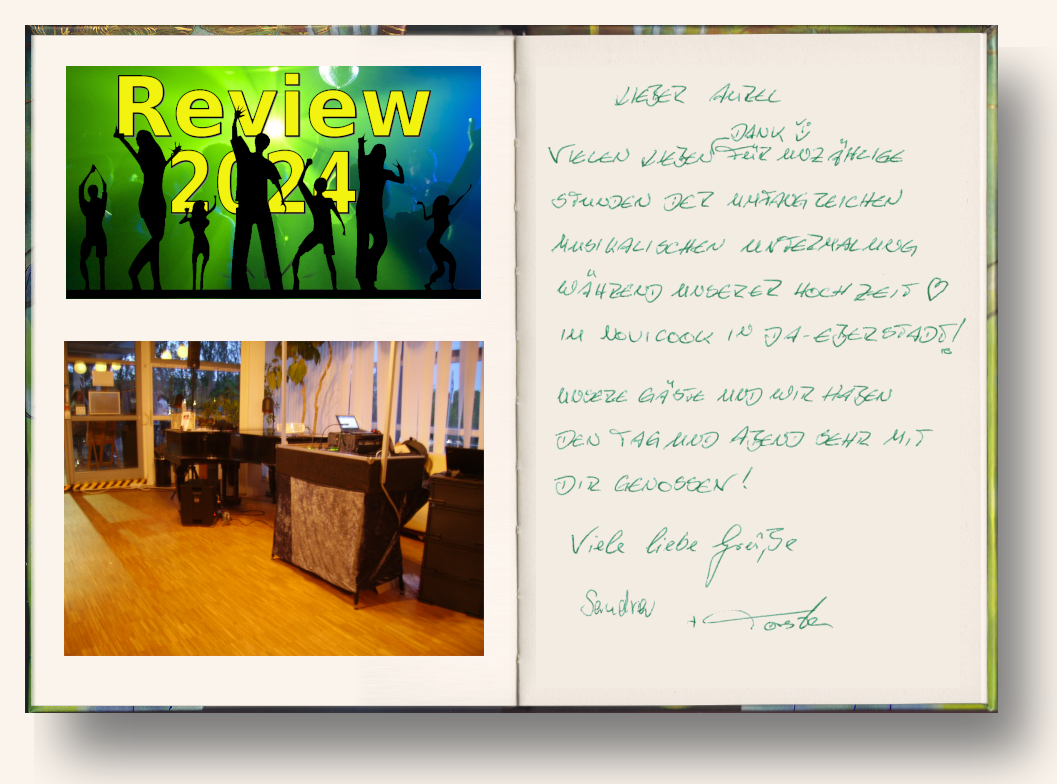 Review
2024
LIEBER AUREL
DANK
VIELEN LIEBEN FÜR UNZÄHLIGE
STUNDEN DER UMFANGREICHEN
MUSIKALISCHEN UNTERMALUNG
WÄHREND UNSERER HOCHZEIT ♡
IM NOVICOOK IN DA-EBERSTADT!
UNSERE GÄSTE UND WIR HABEN
DEN TAG UND ABEND SEHR MIT
DIR GENOSSEN!
Viele liebe Grüße
Sandra
+ Torsten